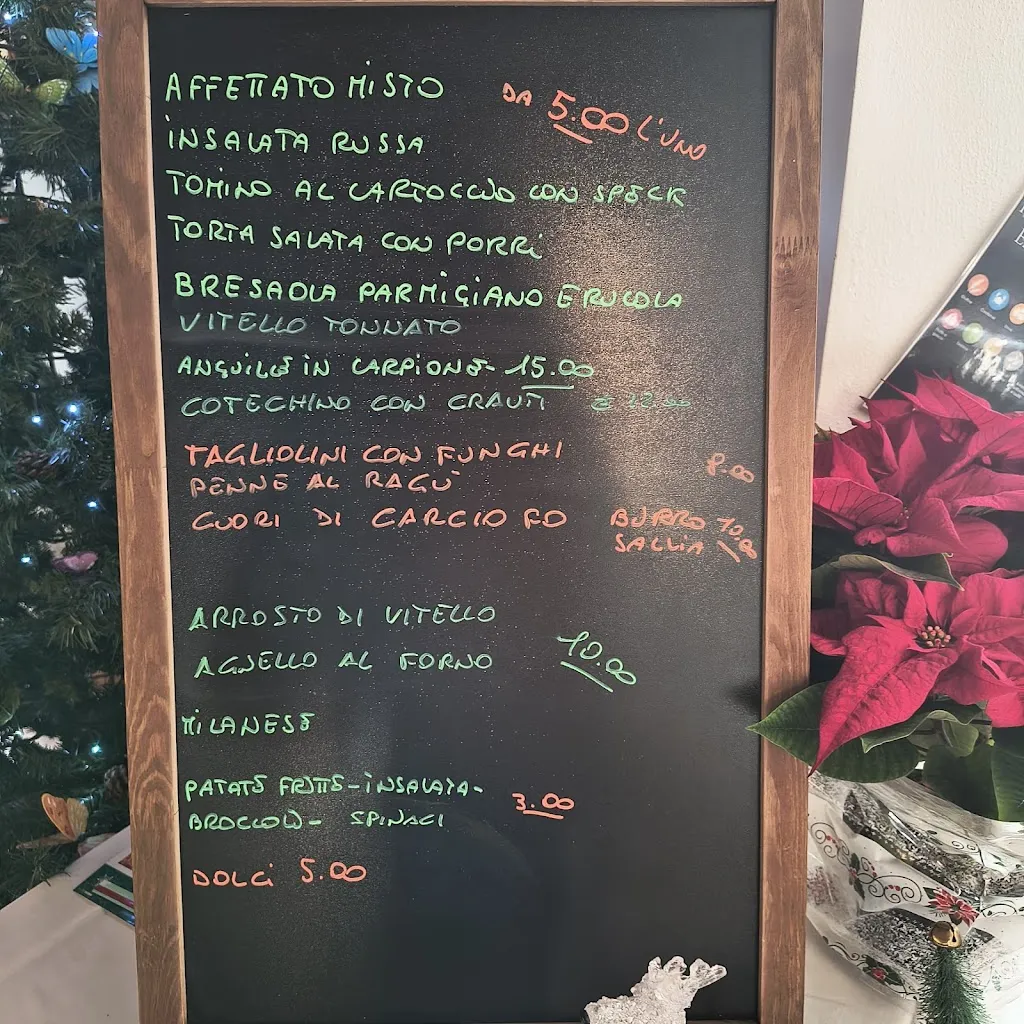 AFFETTATO MISTO
DA 5.00 L'UNO
INSALATA RUSSA
TOMINO AL CARTOCCIO CON SPECK
TORTA SALATA CON PORRI
BRESAOLA PARMIGIANO E RUCOLA
VITELLO TONNATO
ANGUILLE IN CARPIONE- 15.00
COTECHINO CON CRAUTI
TAGLIOLINI CON FUNGHI
8.00
PENNE AL RAGÙ
CUORI DI CARCIOFO BURRO 10.00
SALVIA
ARROSTO DI VITELLO
10.00
AGNELLO AL FORNO
MILANESE
PATATE FRITTE-INSALATA-
BROCCOLI- SPINACI
3.00
DOLCI 5.00